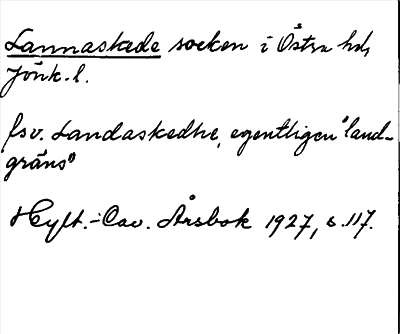 Lannaskede socken i Östra hd,
Jönk. l.
fsv. Landaskedhe, egentligen "land-
gräns"
Hylt.-Cav. Årsbok 1927, s. 117.